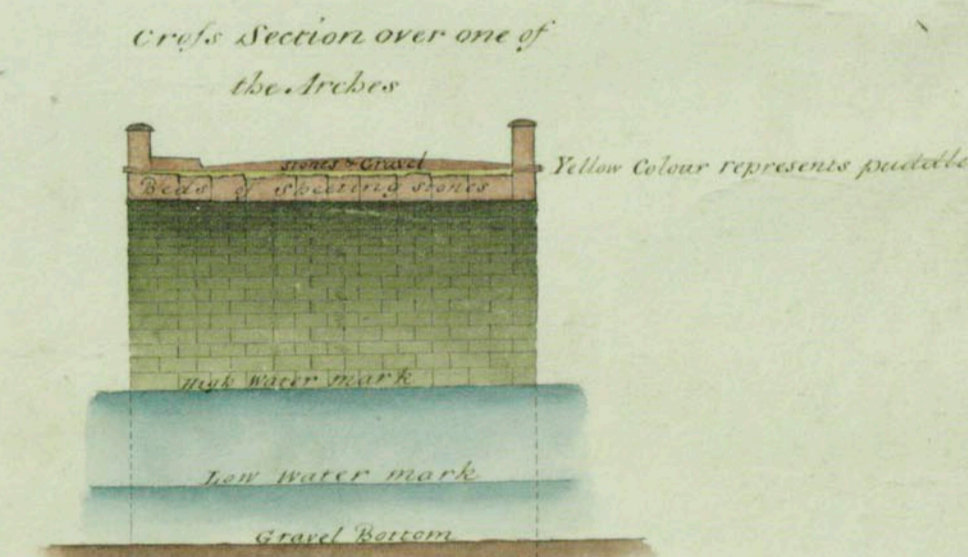 Croſs Section over one of
the Arches
Stones & Gravel
Yellow Colour represents puddle
Beds of Sheeting stones
High Water mark
Low Water mark
Gravel Bottom